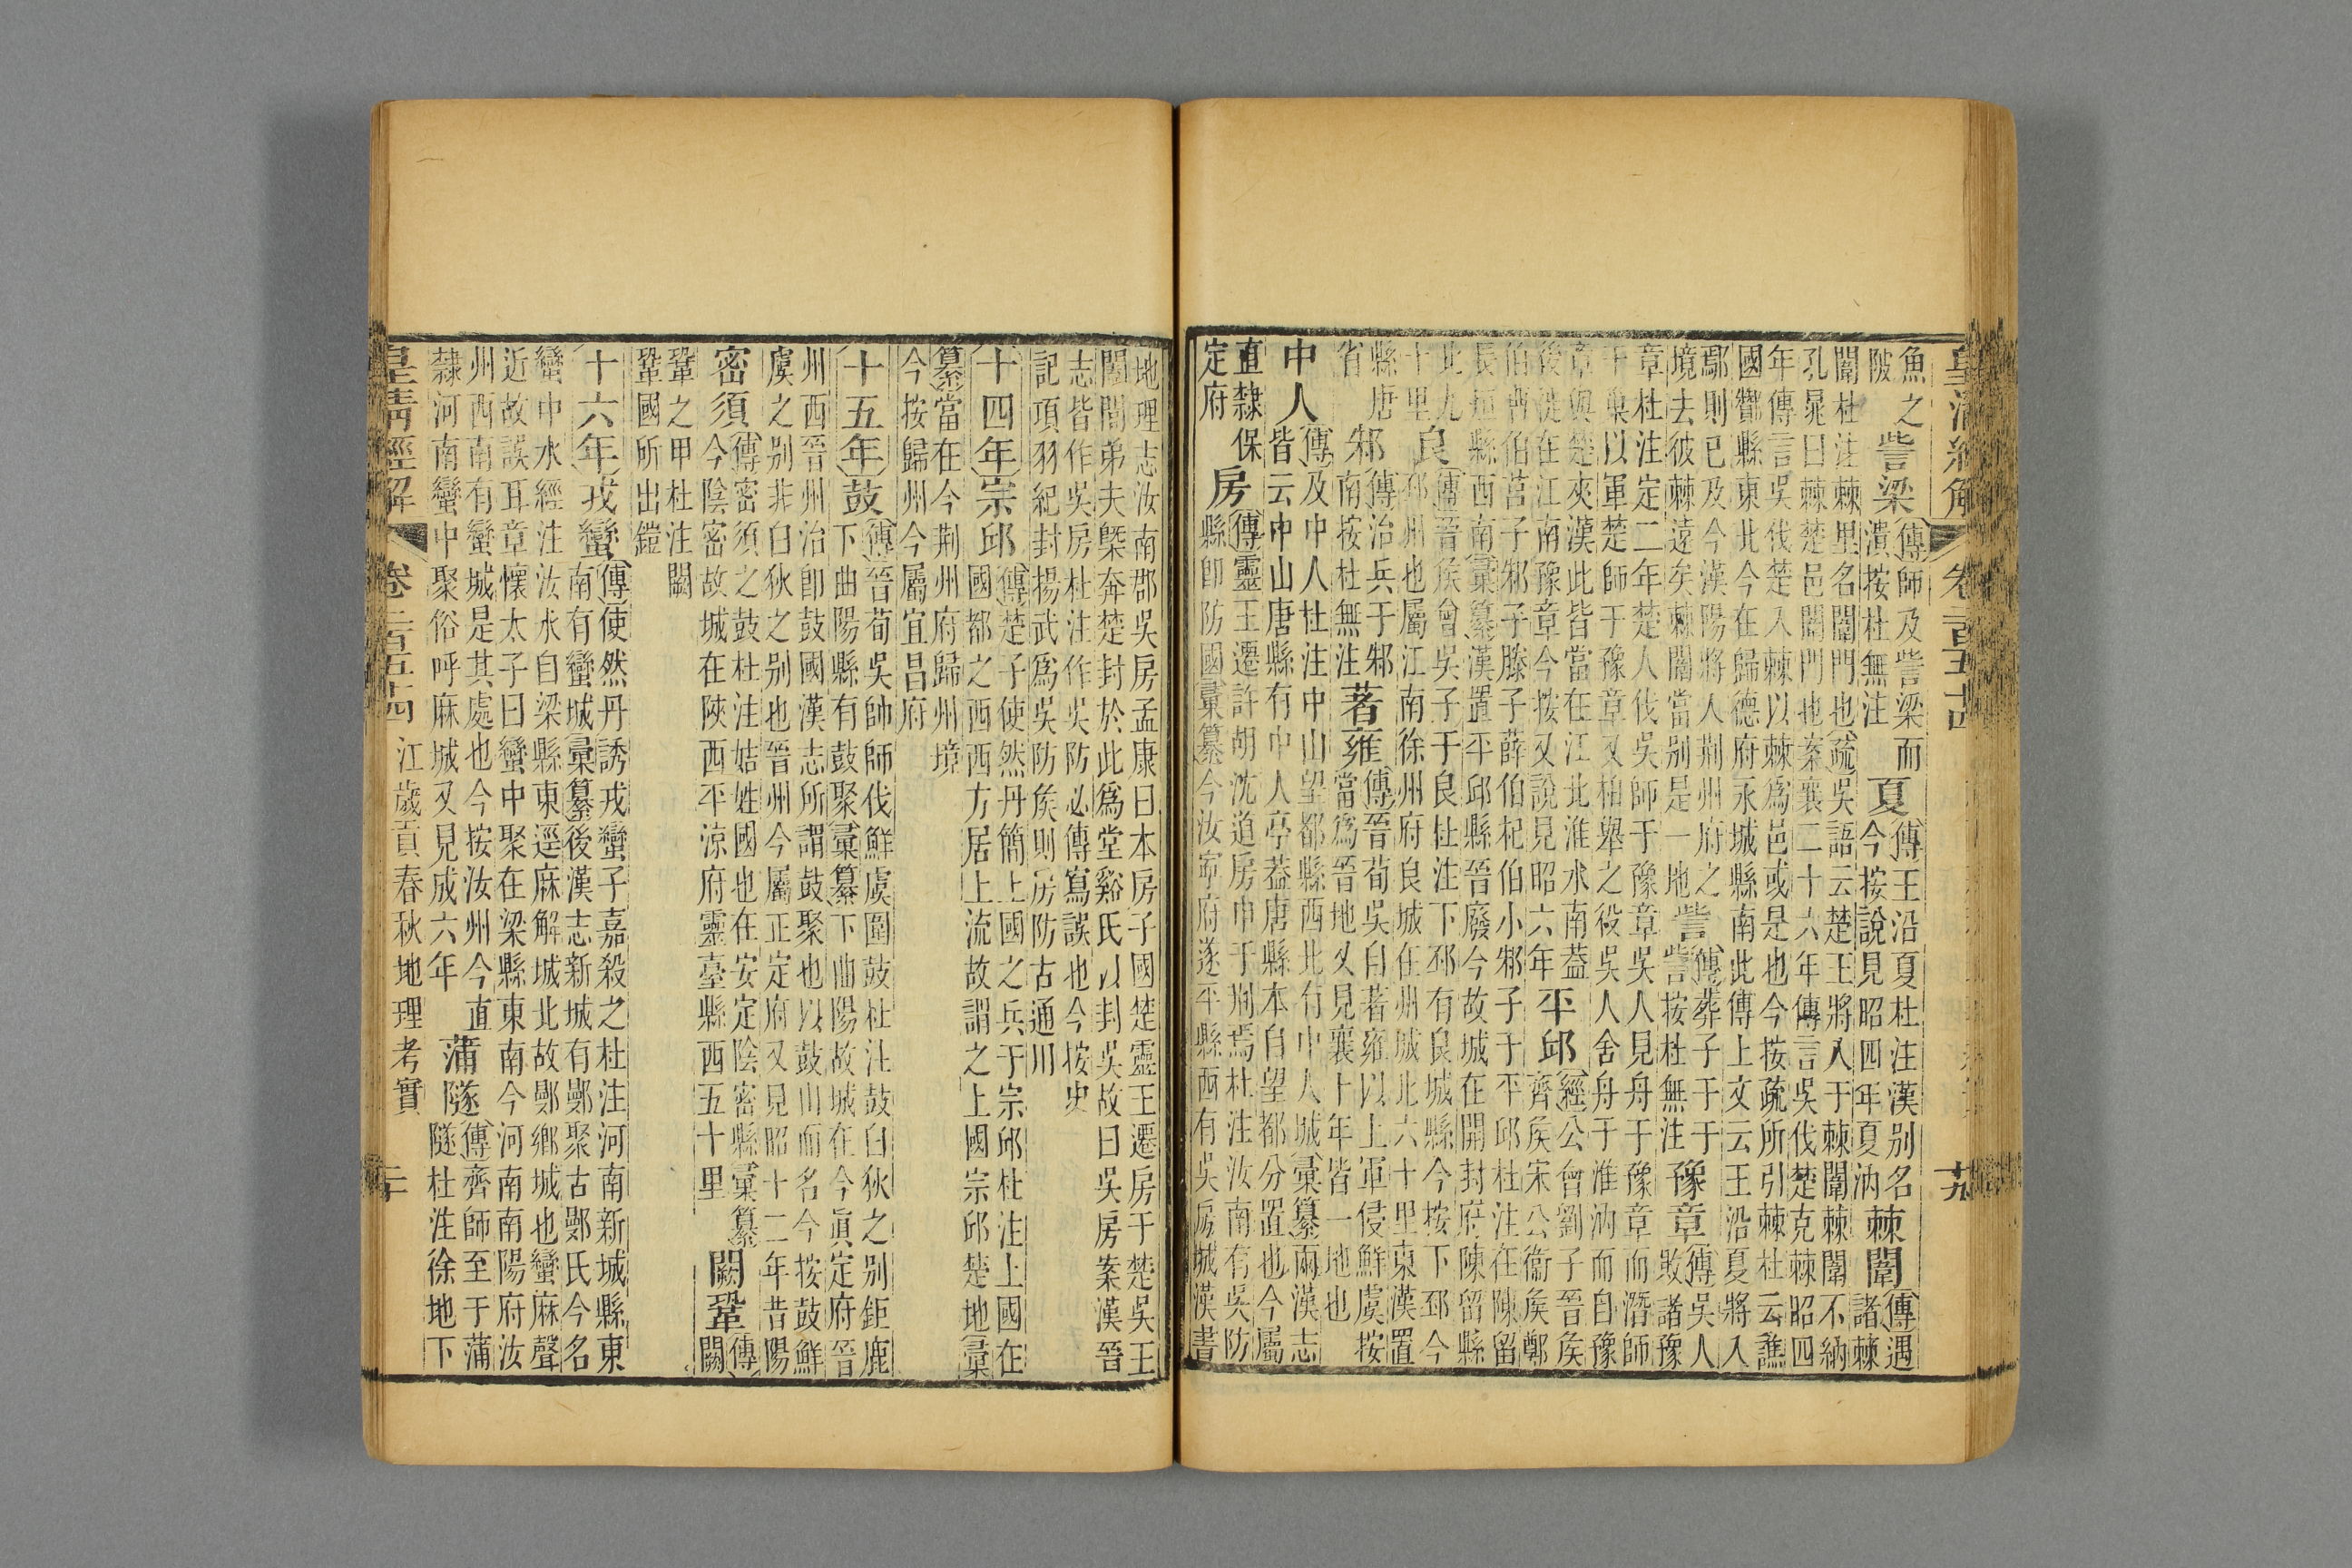 皇清經解 卷二百五十四 十九
魚之
陂
訾梁
傳師及訾梁而
潰按杜無注
夏
傳王沿夏杜注漢别名
今按說見昭四年夏汭
棘闈
傳遇
諸棘
闈杜注棘里名闈門也疏吳語云楚王將入于棘闈棘闈不納
孔晁曰棘楚邑闈門也案襄二十六年傳言吳伐楚克棘昭四
年傳言吳伐楚入棘以棘爲邑或是也今按疏所引棘杜云譙
國酇縣東北今在歸德府永城縣南此傳上文云王沿夏將入
鄢則已及今漢陽將人荆州府之
境去彼棘遠矣棘闈當别是一地
訾
傳葬子干于
訾按杜無注
豫章
傳吳人
敗諸豫
章杜注定二年楚人伐吳師于豫章吳人見舟于豫章而潛師
于巢以軍楚師于豫章又柏舉之役吳人舍舟于淮汭而自豫
章與楚夾漢此皆當在江北淮水南葢
後徙在江南豫章今按又說見昭六年
平邱
經公會劉子晉侯
齊侯宋公衞侯鄭
伯曹伯莒子邾子滕子薛伯杞伯小邾子于平邱杜注在陳留
長垣縣西南彚纂漢置平邱縣晉廢今故城在開封府陳留縣
北九
十里
良
傳晉侯會吳子于良杜注下邳有良城縣今按下邳今
邳州也屬江南徐州府良城在州城北六十里東漢置
縣唐
省
邾
傳治兵于邾
南按杜無注
著雍
傳晉荀吳自著雍以上軍侵鮮虞按
當爲晉地又見襄十年皆一地也
中人
傳及中人杜注中山望都縣西北有中人城彚纂兩漢志
皆云中山唐縣有中人亭葢唐縣本自望都分置也今屬
直隸保
定府
房
傳靈王遷許胡沈道房申于荆焉杜注汝南有吳防
縣卽防國彚纂今汝寧府遂平縣西有吳房城漢書
地理志汝南郡吳房孟康曰本房子國楚靈王遷房于楚吳王
闔閭弟夫槩奔楚封於此爲堂谿氏以封吳故曰吳房案漢晉
志皆作吳房杜注作吳防必傳寫誤也今按史
記項羽紀封揚武爲吳防侯則房防古通川
十四年
宗邱
傳楚子使然丹簡上國之兵于宗邱杜注上國在
國都之西西方居上流故謂之上國宗邱楚地彚
纂當在今荆州府歸州境
今按歸州今屬宜昌府
十五年
鼓
傳晉荀吳帥師伐鮮虞圍鼓杜注鼓白狄之别鉅鹿
下曲陽縣有鼓聚彚纂下曲陽故城在今眞定府晉
州西晉州治卽鼓國漢志所謂鼓聚也以鼓山而名今按鼓鮮
虞之别非白狄之别也晉州今屬正定府又見昭十二年昔陽
密須
傳密須之鼓杜注姞姓國也在安定陰密縣彚纂
今陰密故城在陝西平涼府靈臺縣西五十里
闕鞏
傳
闕
鞏之甲杜注闕
鞏國所出鎧
十六年
戎蠻
傳使然丹誘戎蠻子嘉殺之杜注河南新城縣東
南有蠻城彚纂後漢志新城有鄤聚古鄤氏今名
蠻中水經注汝水自梁縣東逕麻解城北故鄤鄉城也蠻麻聲
近故誤耳章懷太子曰蠻中聚在梁縣東南今河南南陽府汝
州西南有蠻城是其處也今按汝州今直
隸河南蠻中聚俗呼麻城又見成六年
蒲隧
傳齊師至于蒲
隧杜注徐地下
皇清經解 卷二百五十四 江歲貢春秋地理考實 二十